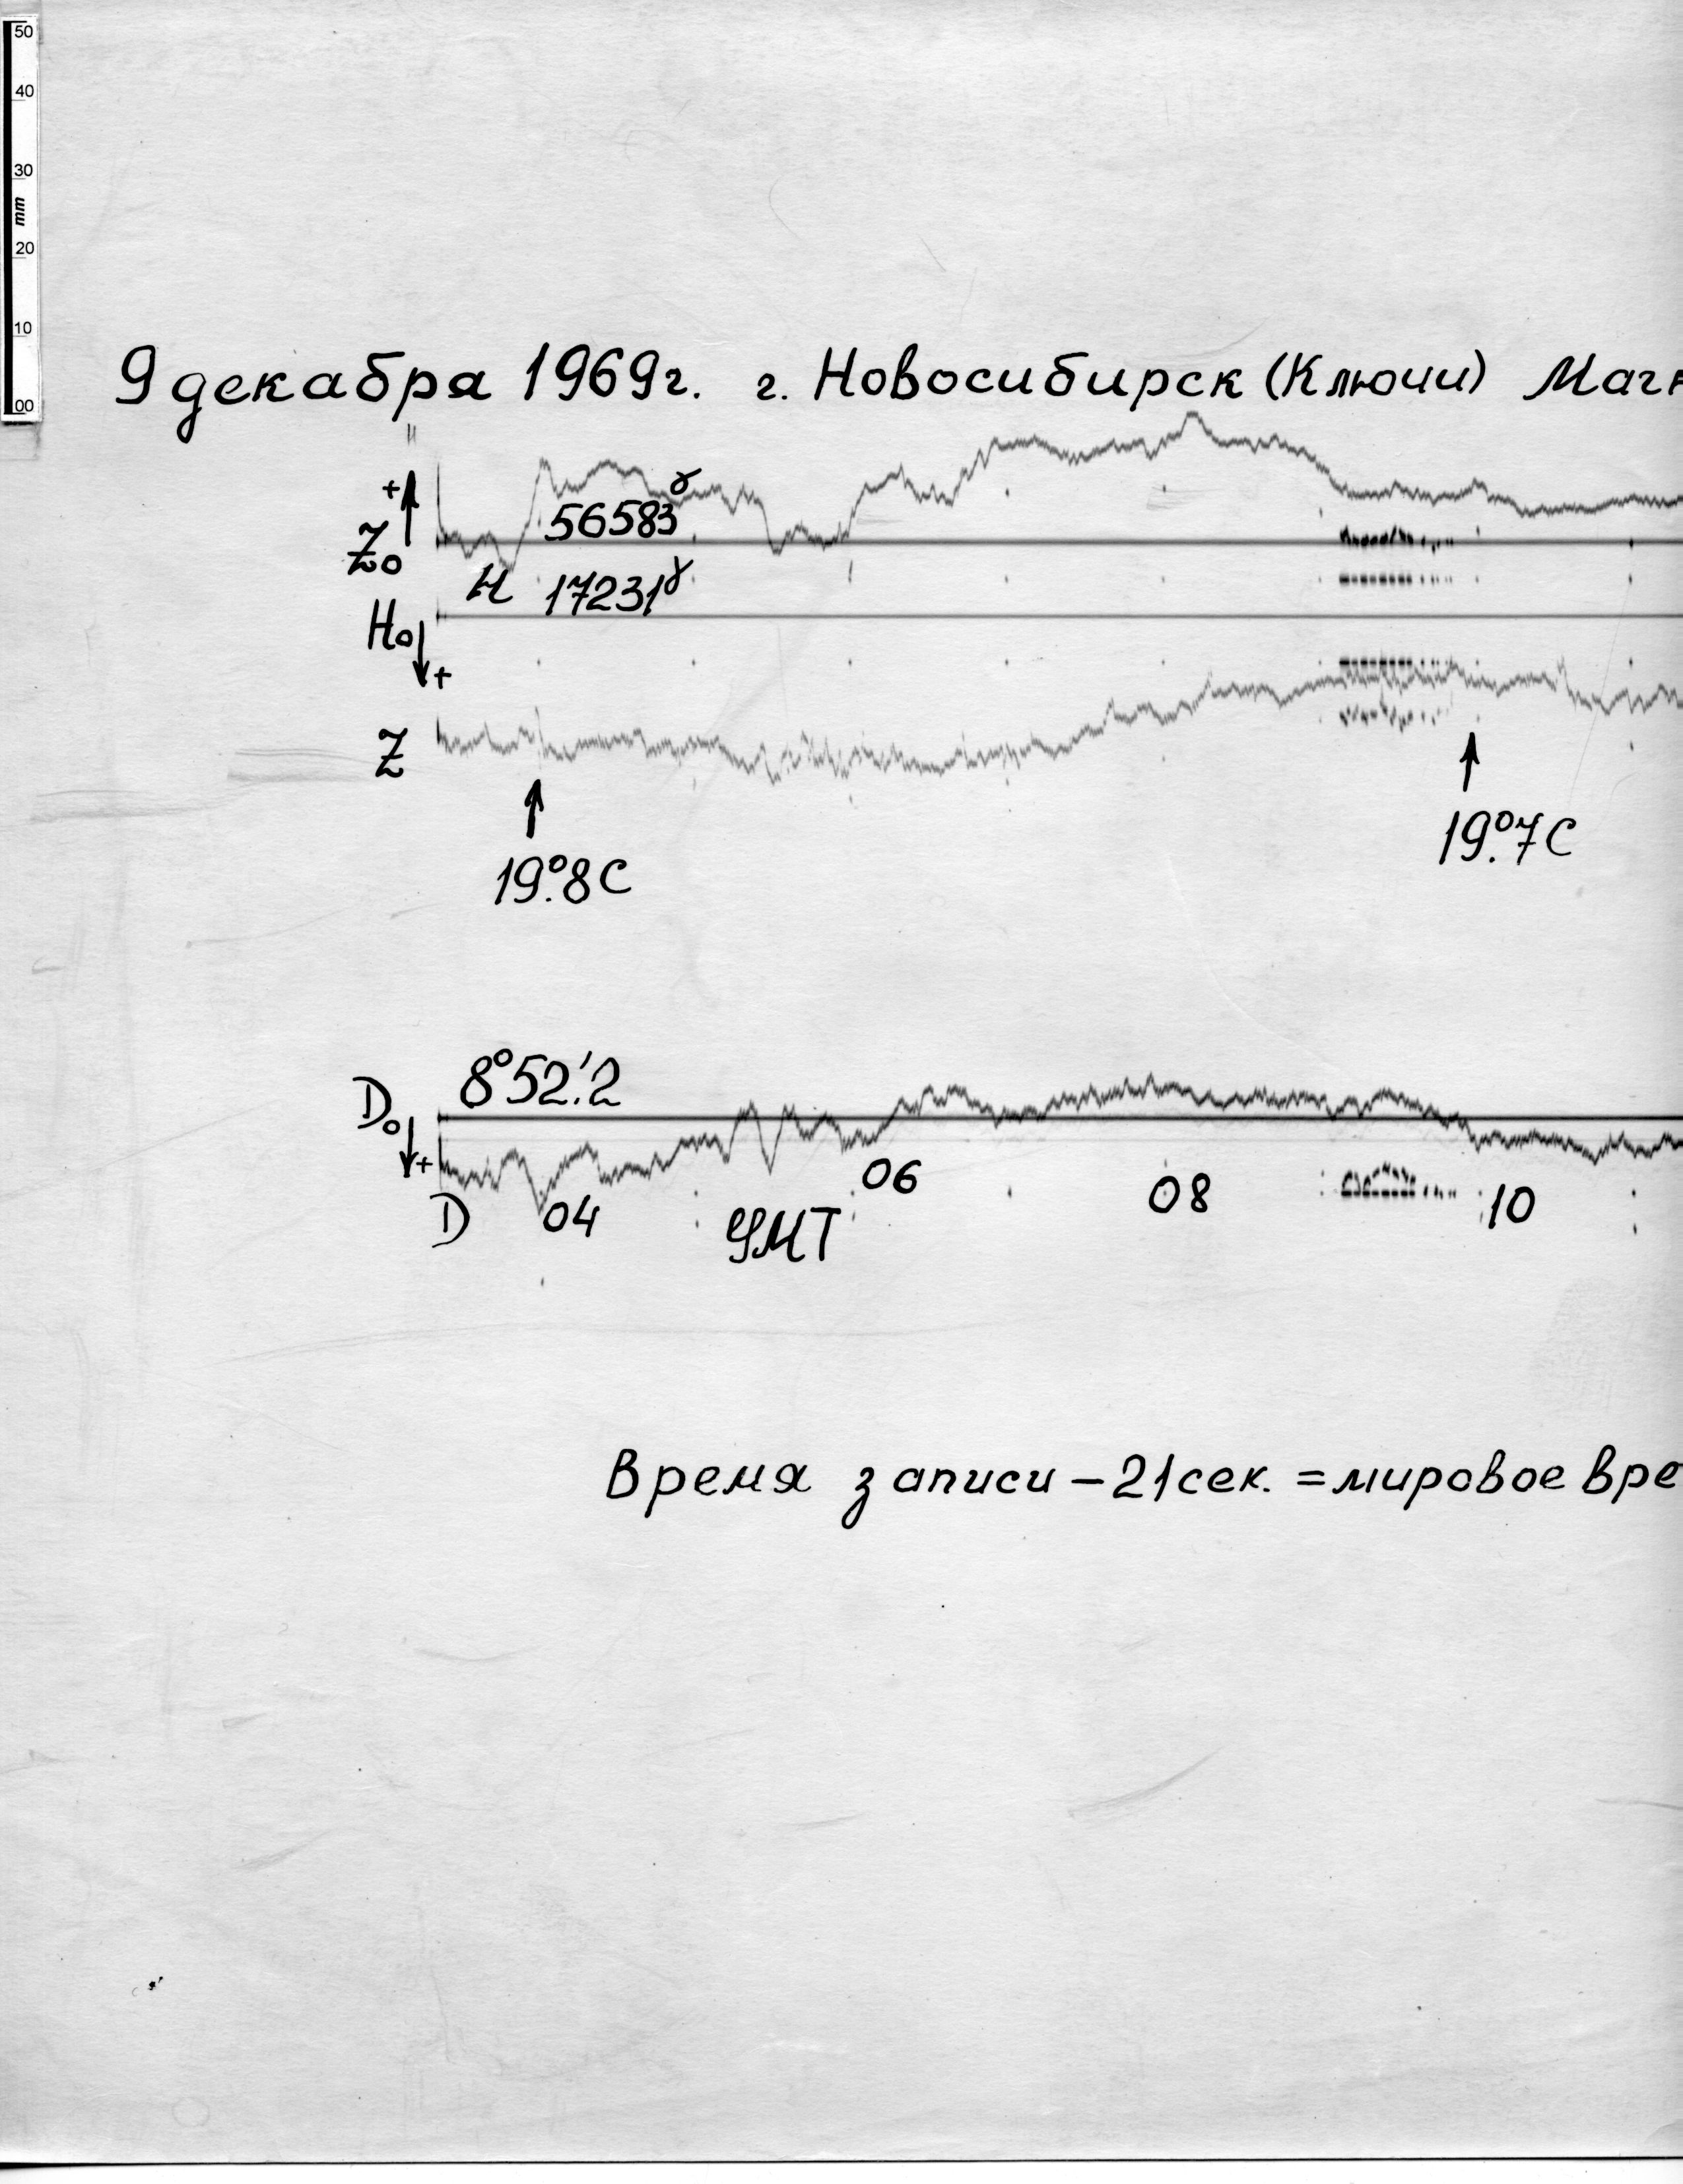 50
40
30
mm
20
10
00
9 декабря 1969г. г. Новосибирск (Ключи) Магн
+
Z₀ 56583γ
H 17231γ
H₀
+
Z
19°.8 C
19°.7 C
D₀ 8°52'.2
+
D 04 GMT 06 08 10
Время записи – 21 сек. = мировое вре